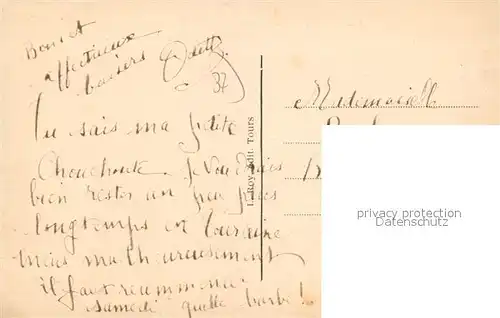 Bons et
affectueux
baisers Odette
37
Tu sais ma petite
Chouchoute je voudrais
bien rester un peu plus
longtemps en Touraine
mais malheureusement
il faut
samedi quelle barbe !
L. Roy, Edit. Tours
Mademoiselle
privacy protection
Watermark